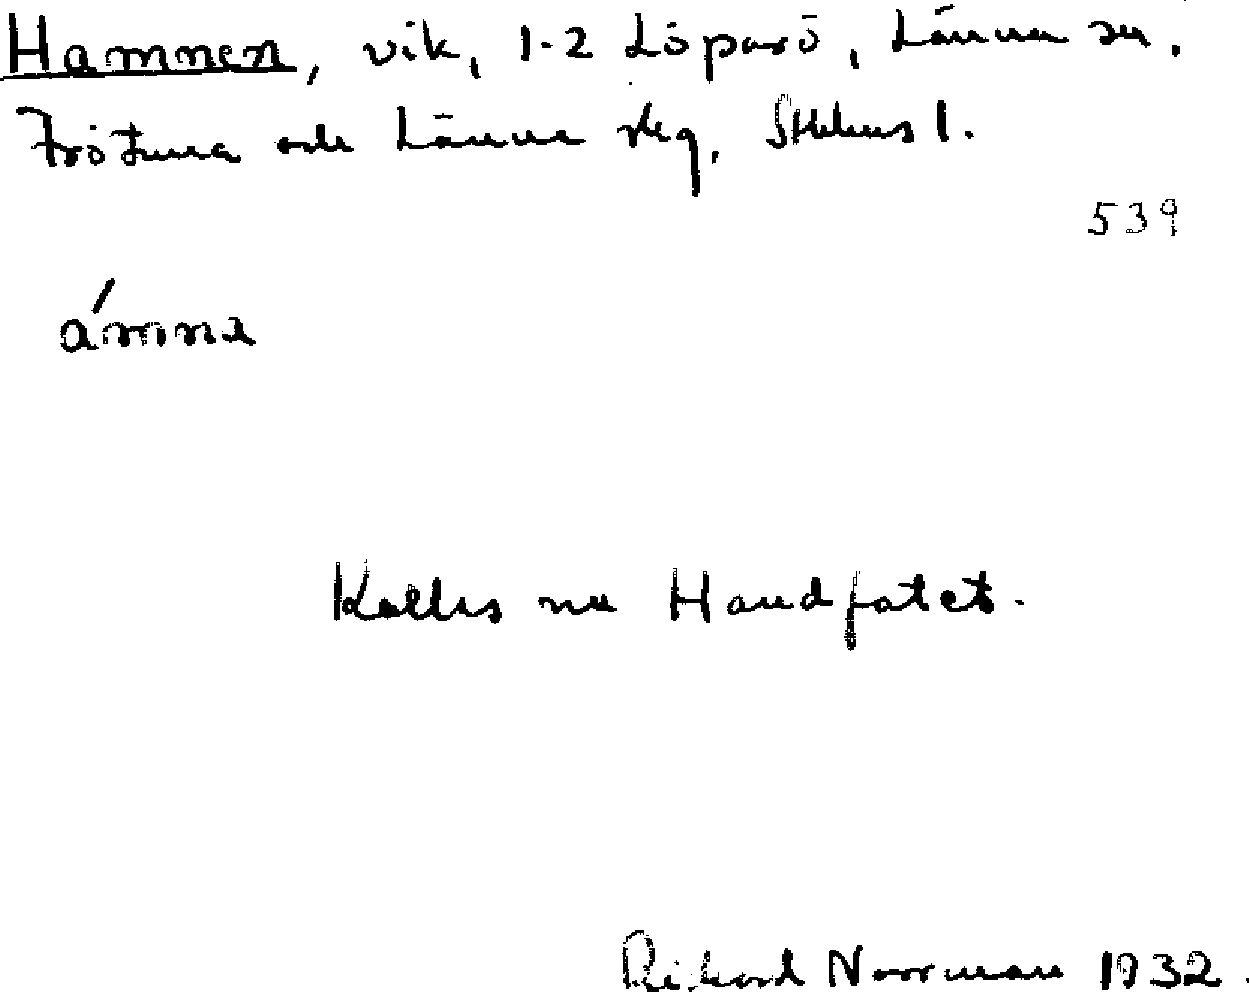 Hamnen, vik, 1-2 Löparö, Länna sn,
Frötuna och Länna skg, Sthlms l.
539
ámna
Kallas nu Handfatet.
Rikard Norrman 1932.